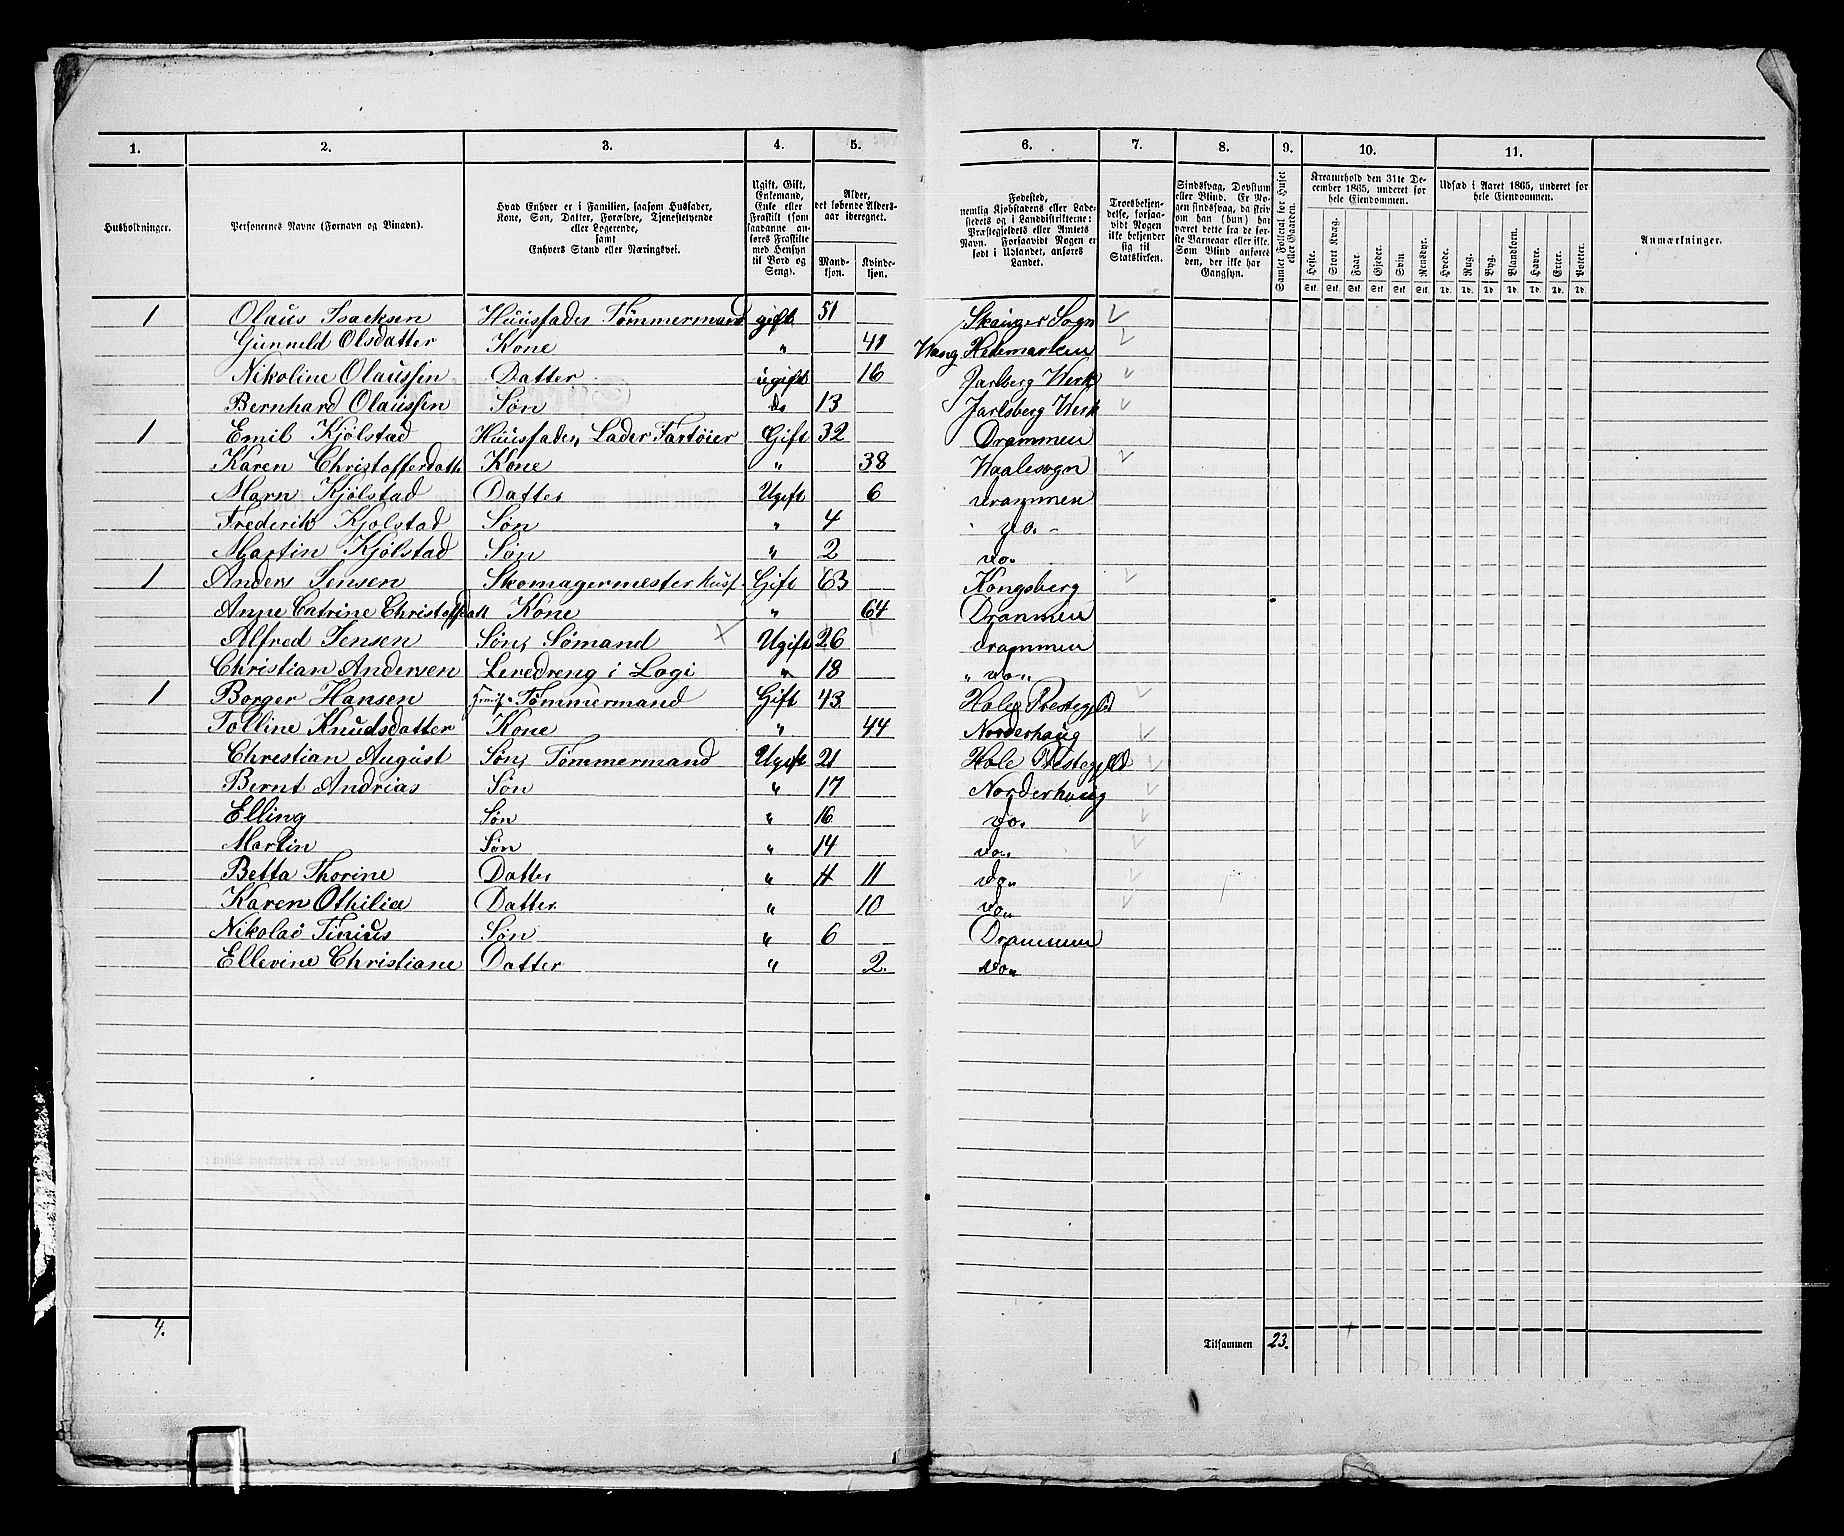 1. 2. 3. 4. 5. 6. 7. 8. 9. 10. 11.
Husholdninger. Personernes Navne (Fornavn og Tilnavn). Hvad Enhver er i Familien, saasom Husfader, Kone, Søn, Datter, Forældre, Tjenestetyende eller Logerende, samt Enhvers Stand eller Næringsvei. Ugift, Gift, Enkemand, Enke eller Frastilt (som saadanne anføres Fraskilte med Hensyn til Bord og Seng). Alder, det løbende Aldersaar iberegnet. Mandkjøn. Kvindekjøn. Fødested, nemlig Kjøbstadens eller Ladestedets og i Landdistrikterne: Præstegjeldets eller Amtets Navn. Forsaavidt Nogen er født i Udlandet, anføres Landet. Troesbekjendelse, forsaavidt Nogen ikke bekjender sig til Statskirken. Sindssvag, Døvstum eller Blind. Er Nogen sindssvag, da skrives om han (hun) har været dette fra de første Barneaar eller ikke. Som Blind anføres den, der ikke har Gangsyn. Samlet Folketal for Huset eller Gaarden. Kreaturhold den 31te December 1865, underet for hele Eiendommen. Heste. Stort Kvæg. Faar. Gjeder. Svin. Rensdyr. Udsæd i Aaret 1865, underet for hele Eiendommen. Hvede. Rug. Byg. Blandkorn. Havre. Erter. Poteter. Anmærkninger.
Stk. Stk. Stk. Stk. Stk. Stk. Td. Td. Td. Td. Td. Td. Td.
1 Olaus Isaksen Huusfader Tømmermand gift 51 Skauger Sogn
Gunneld Olsdatter Kone " 41 Wang Hedemarken
Nikoline Olaussen Datter ugift 16 Jarlberg Werk
Bernhard Olaussen Søn do 13 Jarlsberg Werk
1 Emil Kjølstad Huusfader, Lader Fartøier Gift 32 Drammen
Karen Christofferdatt Kone " 38 Waalesogn
Marn Kjølstad Datter Ugift 6 Drammen
Frederik Kjølstad Søn " 4 do. -
Martin Kjølstad Søn " 2 do.
1 Anders Jensen Skomagermester husf. Gift 63 Kongsberg
Anne Catrine Christoffdatt Kone " 64 Drammen
Alfred Jensen Søn, Sømand Ugift 26 drammen
Christian Andersen Leredreng i Logi " 18 " do "
1 Borger Hansen Huusf. Tømmermand Gift 43 Hole Prestegjeld
Tolline Knudsdatter Kone " 44 Norderhaug
Chrestian August Søn, Tømmermand Ugift 21 Hole Prestegjeld
Bernt Andrias Søn " 17 Norderhaug
Elling Søn " 16 do.
Martin Søn " 14 do.
Betta Thorine Datter " 11 do.
Karen Othilia Datter " 10 do.
Nikolai Tinius Søn " 6 Drammen
Ellevine Christiane Datter " 2. do.
4. Tilsammen 23.